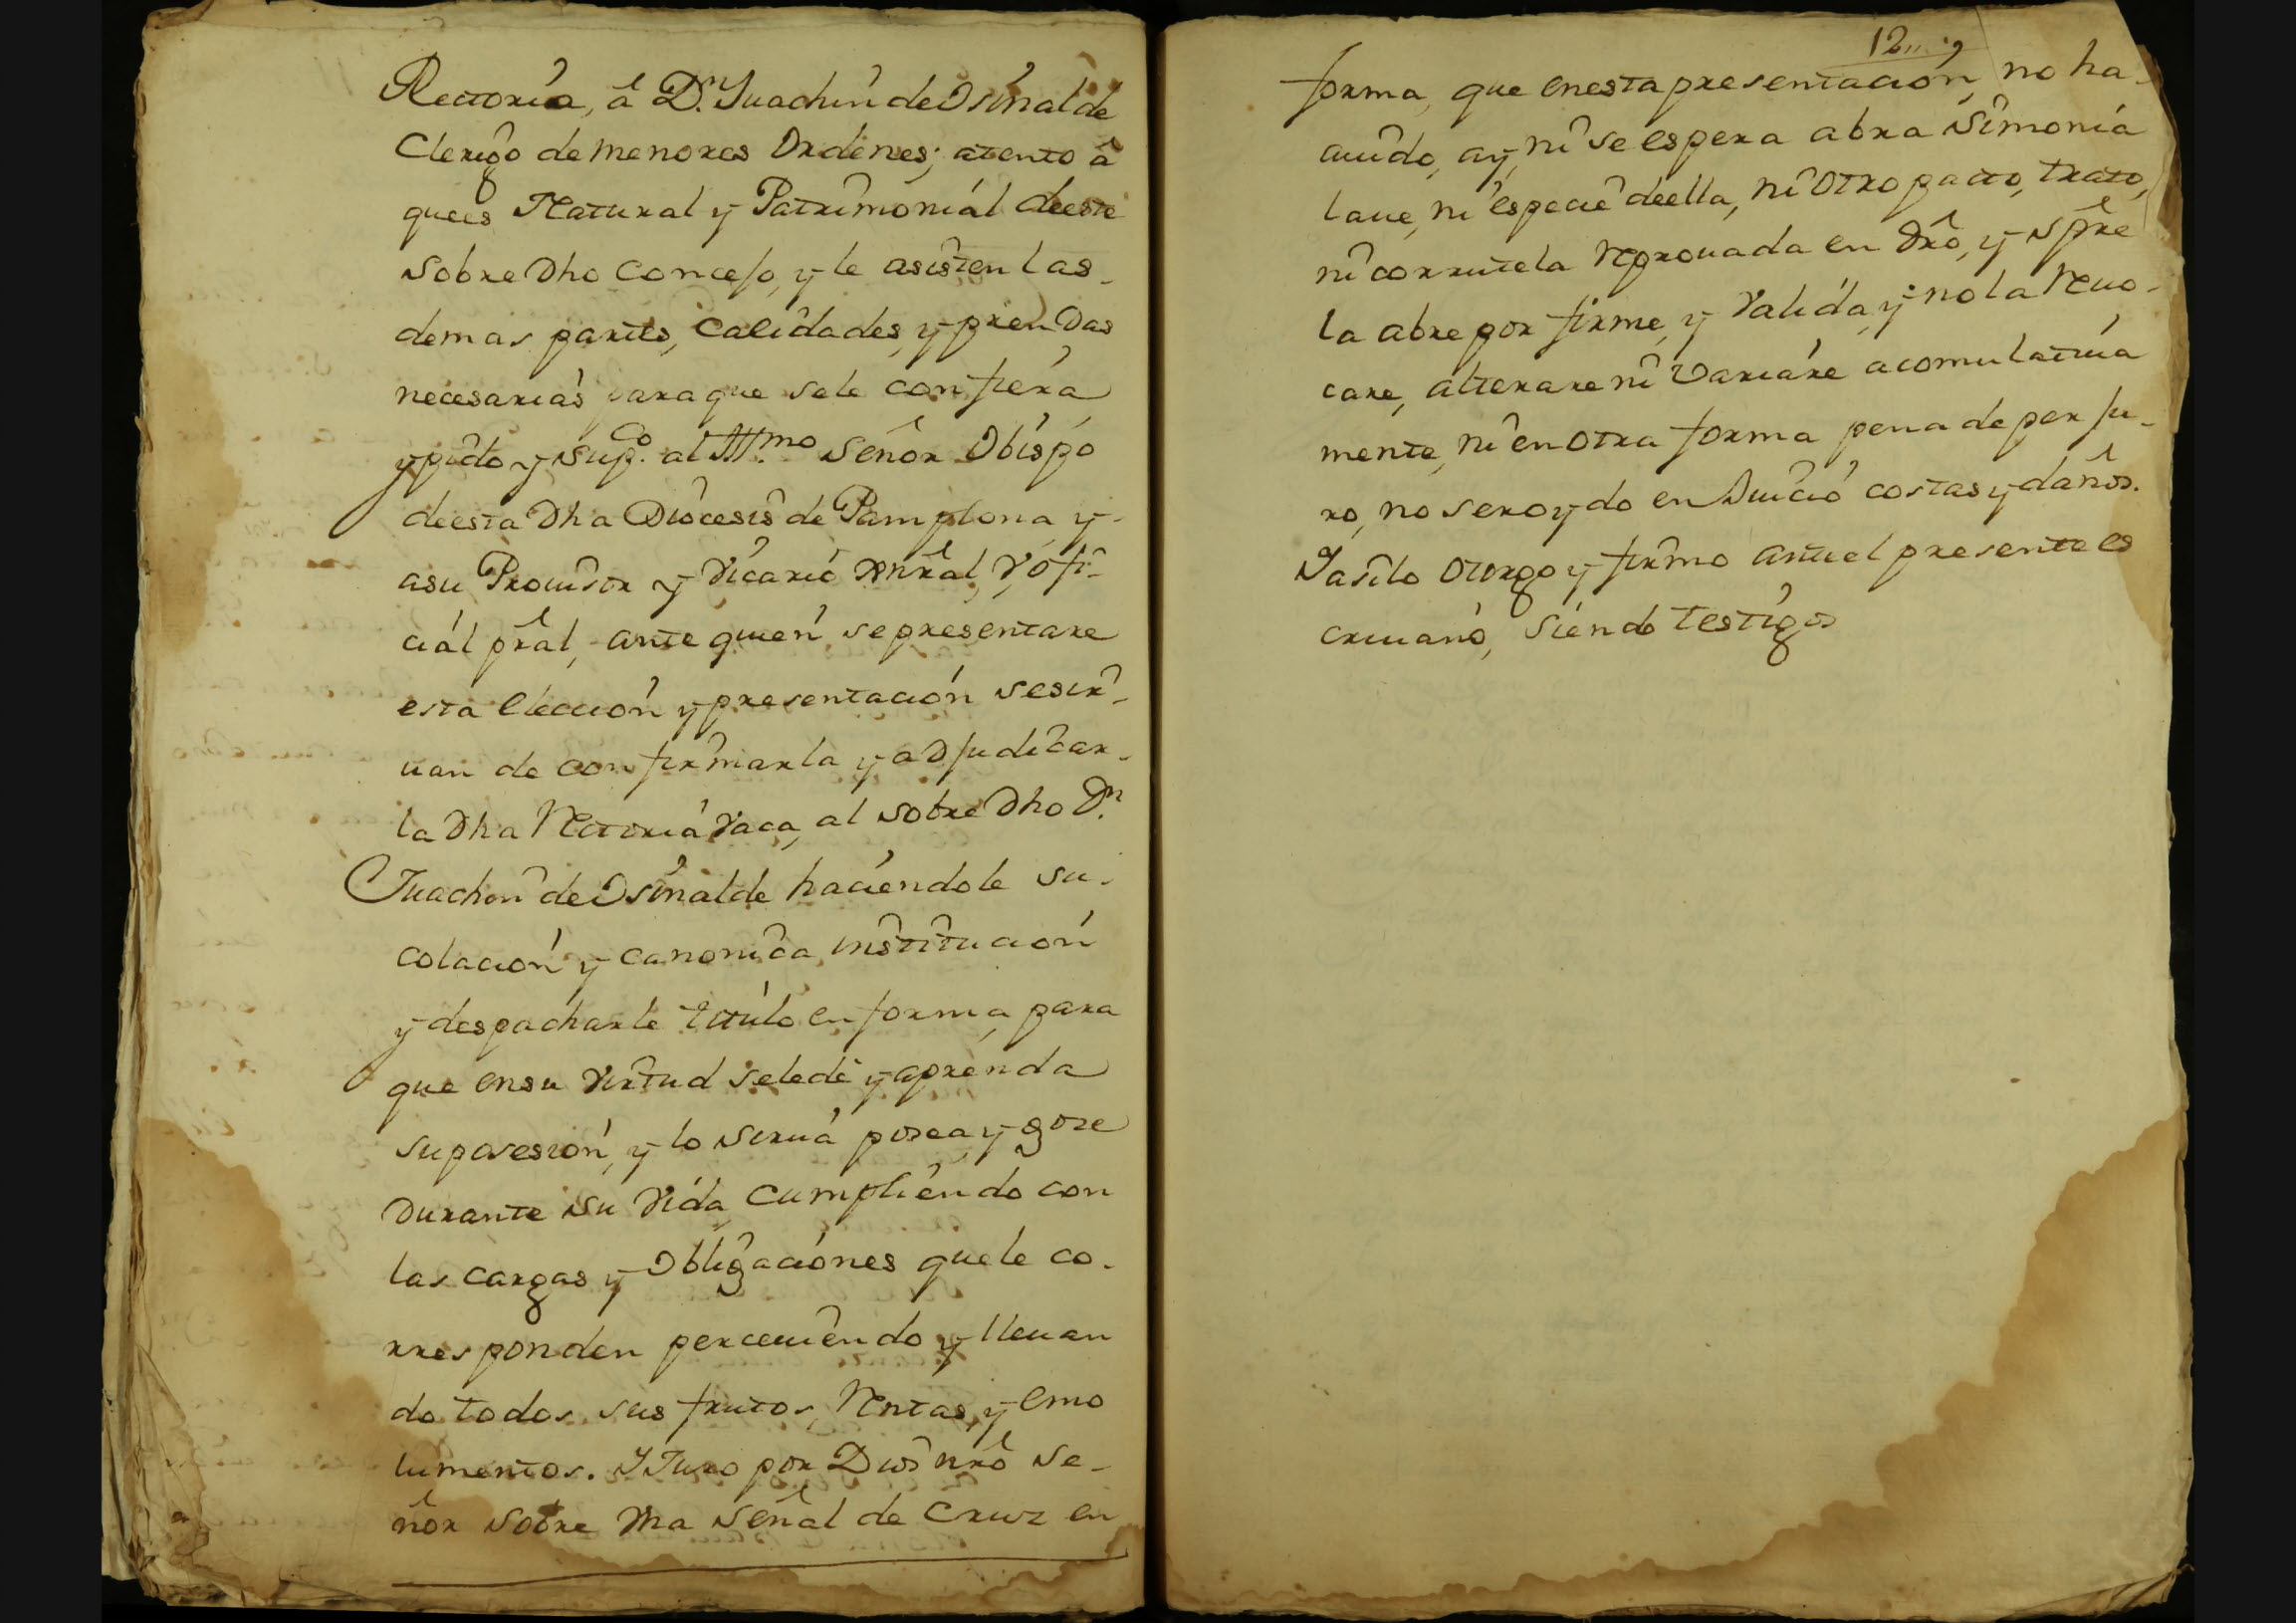 Rectoria, â Dn. Juachin de Osinalde
Clerigo de menores Ordenes; atento â
quees Natural y Patrimonial deeste
sobre dho Concejo, y le asisten las
demas partes, calidades, y prendas
necesarias para que sele confiera
y pido y supco. al Illmo. Señor Obispo
deesta dha Diocesis de Pamplona y
asu Prouisor y Vicario xnral, y ofi-
cial pral, ante quien se presentare
esta eleccion y presentacion sesir-
uan de confirmarla y adjudicar-
la dha Rectoria Vaca, al sobre dho Dn.
Juachin de Osinalde haciendole su
colacion y canonica, institucion
y despacharle titulo en forma, para
que ensu Virtud selede y aprenda
suposesion, y lo sirua posea, y goze
durante su Vida, cumpliendo con
las cargas y Obligaciones quele co-
rresponden perceuiendo y lleuan
do todos sus frutos, Rentas, y emo
lumentos. Y Juro por Dios nro Se-
ñor sobre Vna señal de Cruz en
12
forma, que enesta presentacion, no ha-
auido, ay, ni se espera abra Simonia
laue, ni especie deella, ni otro pacto, trato,
ni corrutela reprouada en dro, y spre
la abre por firme, y Valida, y no la reuo-
care, alterare ni Variare acomulatiua
mente, ni en otra forma pena de perju-
ro, no ser oydo en Juicio costas y daños.
Y asilo otorgo y firmo anteel presente es
criuano, siendo testigos